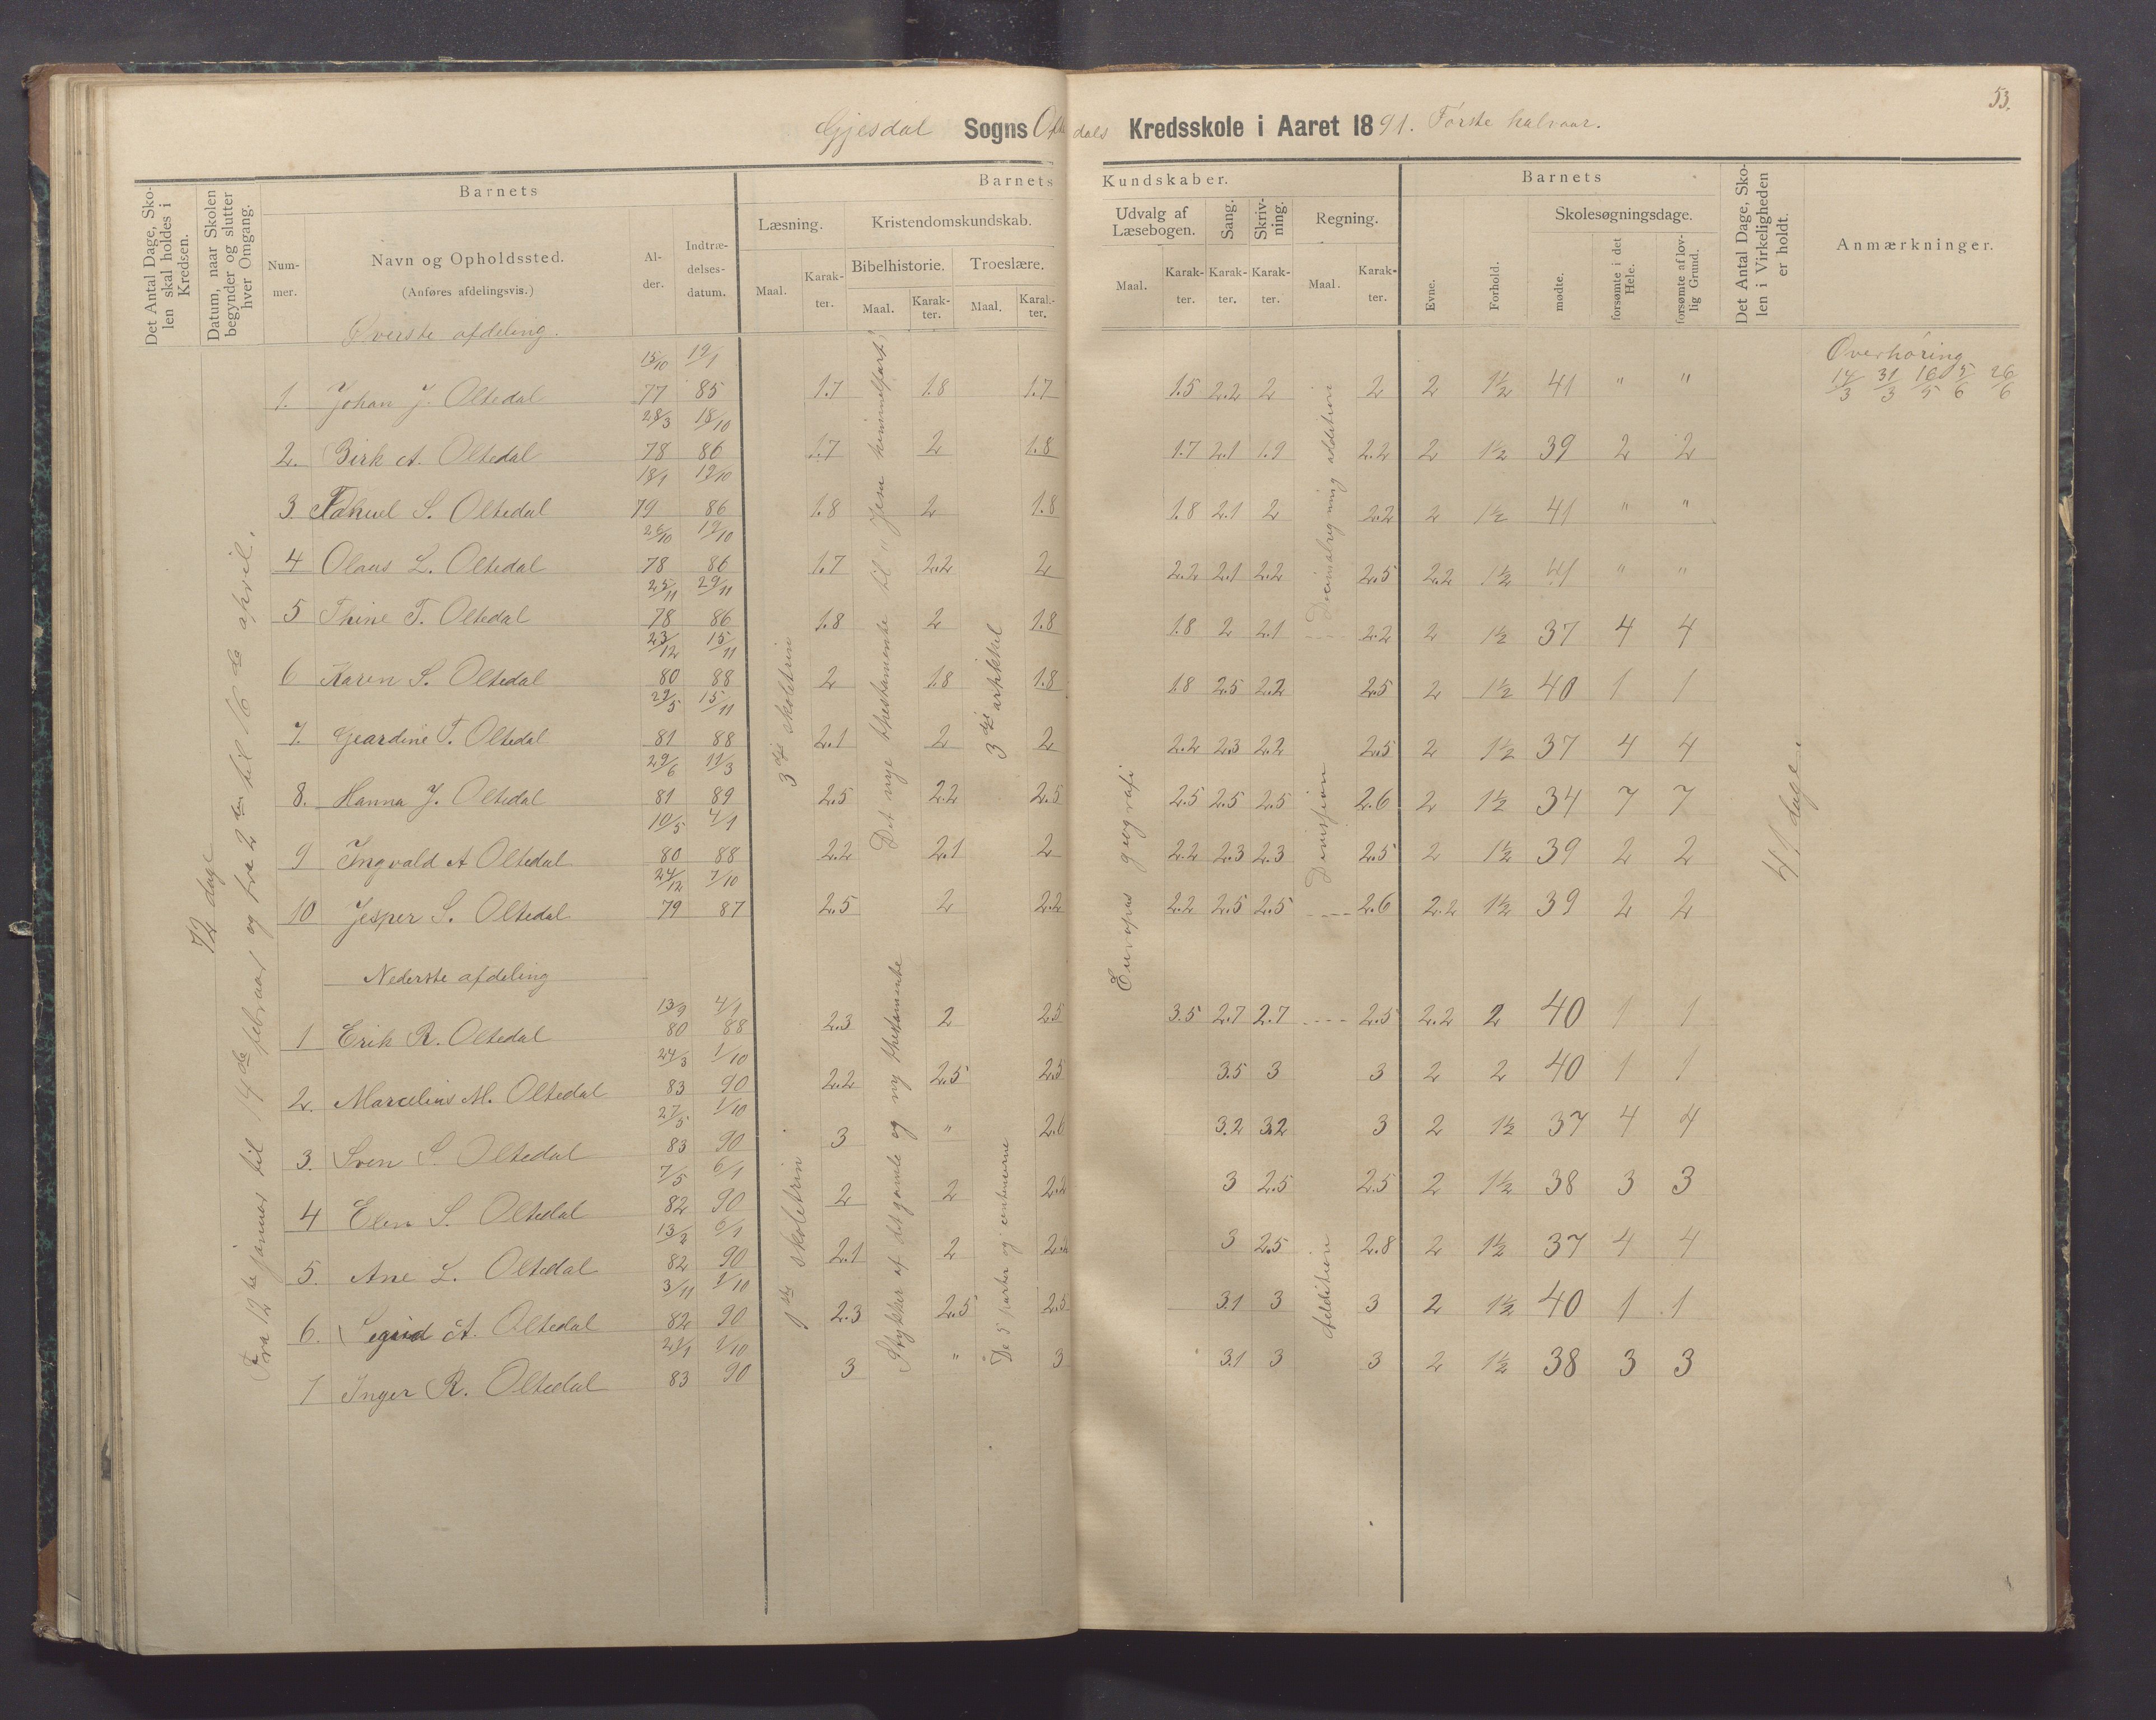 53.
Gjesdal Sogns Oltedals Kredsskole i Aaret 1891. Første halvaar.
Det Antal Dage, Skolen skal holdes i Kredsen.
Datum, naar Skolen begynder og slutter hver Omgang.
Barnets
Nummer.
Navn og Opholdssted.
(Anføres afdelingsvis.)
Alder.
Indtrædelsesdatum.
Barnets Kundskaber.
Læsning.
Maal. Karakter.
Kristendomskundskab.
Bibelhistorie.
Maal. Karakter.
Troeslære.
Maal. Karakter.
Udvalg af Læsebogen.
Maal. Karakter.
Sang.
Karakter.
Skrivning.
Karakter.
Regning.
Maal. Karakter.
Barnets
Evne.
Forhold.
Skolesøgningsdage.
mødte.
forsømte i det Hele.
forsømte af lovlig Grund.
Det Antal Dage, Skolen i Virkeligheden er holdt.
Anmærkninger.
72 dage
Fra 12te januar til 14de februar og fra 2den til 16de april.
3dje skoletrin
Det nye thestamente til "Jesu himmelfart"
3dje artikkel
Europas geografi
Decimalregning addition
Division
41 dage.
Overhøring
17/3 31/3 16/5 5/6 26/6
Øverste afdeling.
1. Johan J. Oltedal 15/10 77 12/1 85 1.7 1.8 1.7 1.5 2.2 2 2 2 1½ 41 " "
2. Birk A. Oltedal 28/3 78 18/10 86 1.7 2 1.8 1.7 2.1 1.9 2.2 2 1½ 39 2 2
3. S. Oltedal 18/1 79 12/10 86 1.8 2 1.8 1.8 2.1 2 2.2 2 1½ 41 " "
4 Olaus L. Oltedal 26/10 78 12/10 86 1.7 2.2 2 2.2 2.1 2.2 2.5 2.2 1½ 41 " "
5 Thine T. Oltedal 25/11 78 29/11 86 1.8 2 1.8 1.8 2 2.1 2.2 2 1½ 37 4 4
6 Karen S. Oltedal 23/12 80 15/11 88 2 1.8 1.8 1.8 2.5 2.2 2.5 2 1½ 40 1 1
7. Geardine T. Oltedal 29/5 81 15/11 88 2.1 2 2 2.2 2.3 2.2 2.5 2 1½ 37 4 4
8. Hanna J. Oltedal 29/6 81 12/3 89 2.5 2.2 2.5 2.5 2.5 2.5 2.6 2 1½ 34 7 7
9 Ingvald A Oltedal 10/5 80 4/1 88 2.2 2.1 2 2.2 2.3 2.3 2.5 2 1½ 39 2 2
10 Jesper S. Oltedal 24/12 79 7/10 87 2.5 2 2.2 2.2 2.5 2.5 2.6 2.2 1½ 39 2 2
Nederste afdeling
1ste skoletrin
Stykker af det gamle og ny thestamente
De 5 parter og
Addition
1 Erik R. Oltedal 13/9 80 4/1 88 2.3 2 2.5 3.5 2.7 2.7 2.5 2.2 2 40 1 1
2. Marcelius M. Oltedal 24/3 83 1/10 90 2.2 2.5 2.5 3.5 3 3 2 2 40 1 1
3. Sven S. Oltedal 27/5 83 1/10 90 3 " 2.6 3.2 3.2 3 2 1½ 37 4 4
4 Elen S. Oltedal 7/5 82 6/1 90 2 2 2.2 3 2.5 2.5 2 1½ 38 3 3
5. Ane L. Oltedal 82 6/1 90 2.1 2 3 2.5 2.8 2 1½ 37 4 4
6. Sigrid A. Oltedal 3/11 82 1/10 90 2.3 2.5 2.5 3.1 3 3 2 1½ 40 1 1
7 Inger R. Oltedal 83 1/10 90 3 " 3 3.1 3 3 2 1½ 38 3 3